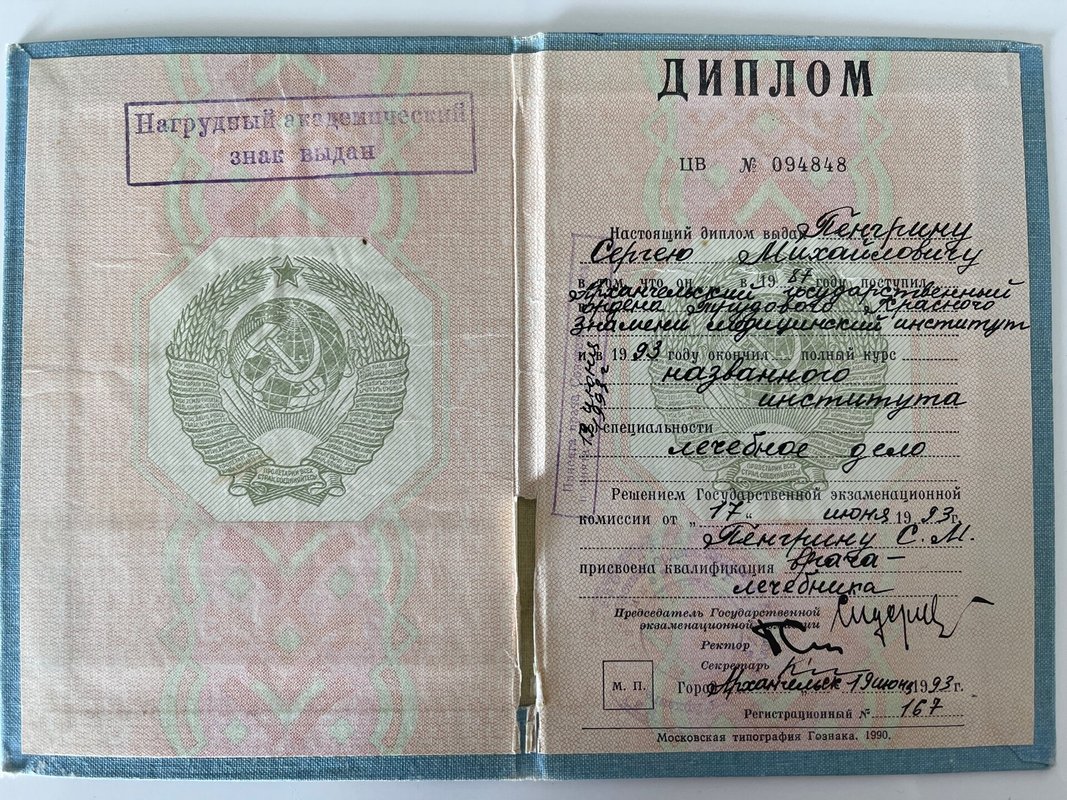 Нагрудный академический
знак выдан
ПРОЛЕТАРИИ ВСЕХ
СТРАН, СОЕДИНЯЙТЕСЬ!
ДИПЛОМ
ЦВ № 094848
Настоящий диплом выдан Пенгрину
Сергею Михайловичу
в том, что он в 1987 году поступил
Архангельский государственный
ордена Трудового Красного
Знамени медицинский институт
и в 1993 году окончил полный курс
названного
института
по специальности
лечебное дело
ПРОЛЕТАРИИ ВСЕХ
СТРАН, СОЕДИНЯЙТЕСЬ!
Решением Государственной экзаменационной
комиссии от „17“ июня 1993г.
Пенгрину С. М.
присвоена квалификация врача-
лечебника
Председатель Государственной
экзаменационной комиссии
Ректор
Секретарь
М. П.
Город Архангельск 19 июня 1993г.
Регистрационный № 167
Московская типография Гознака. 1990.
19 июня
1993 г